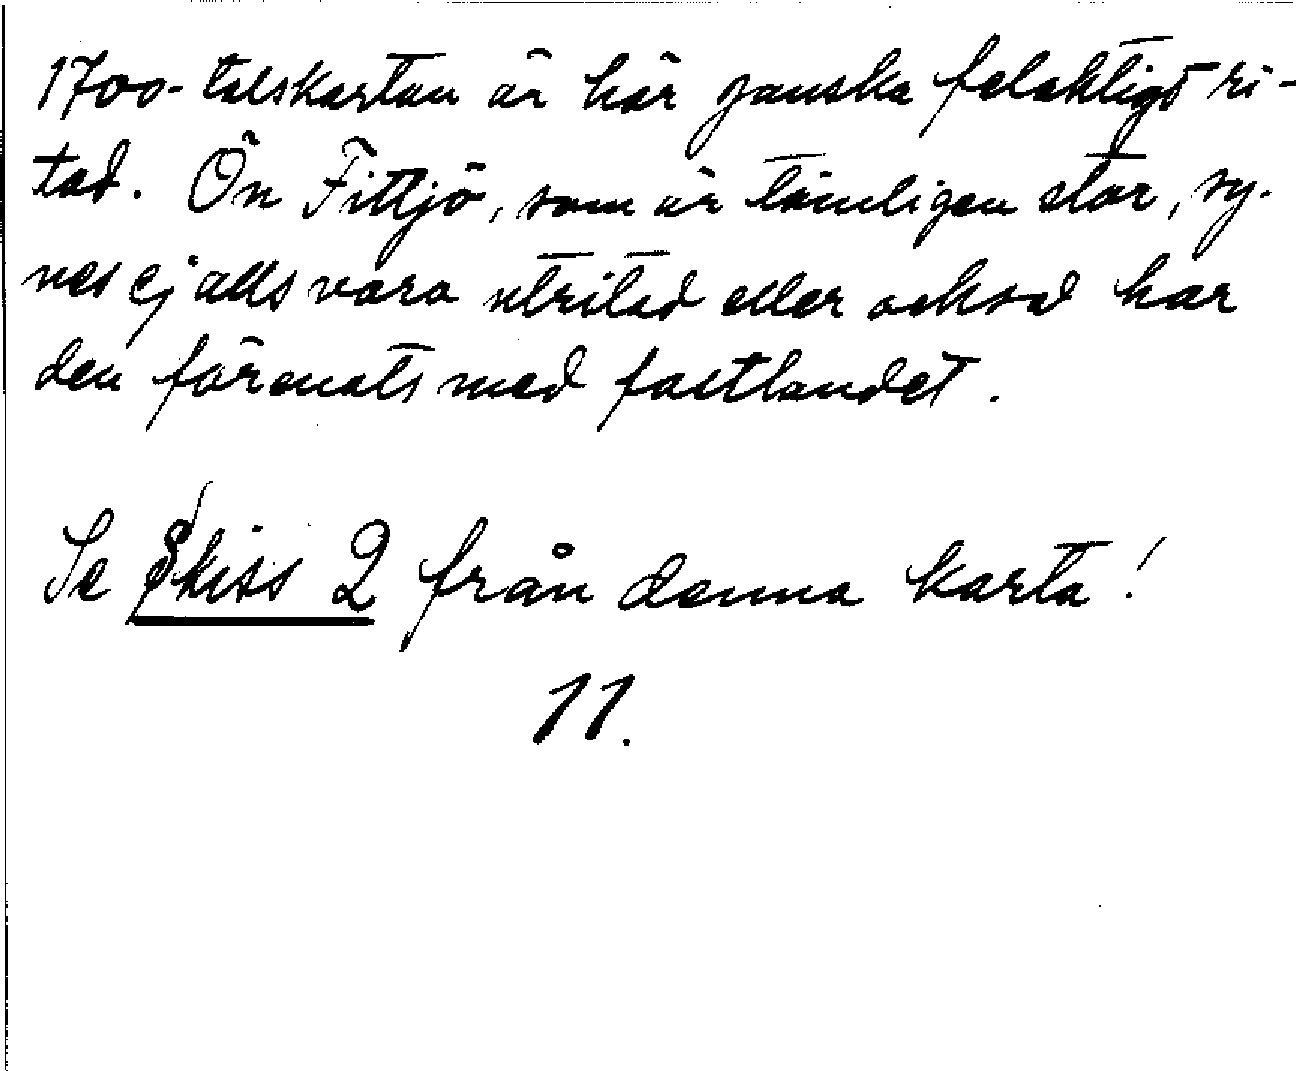 1700-talskartan är här ganska felaktigt ri-
tad. Ön Fittjö, som är tämligen stor, sy-
nes ej alls vara utritad eller också har
den förenats med fastlandet.
Se Skiss 2 från denna karta!
11.